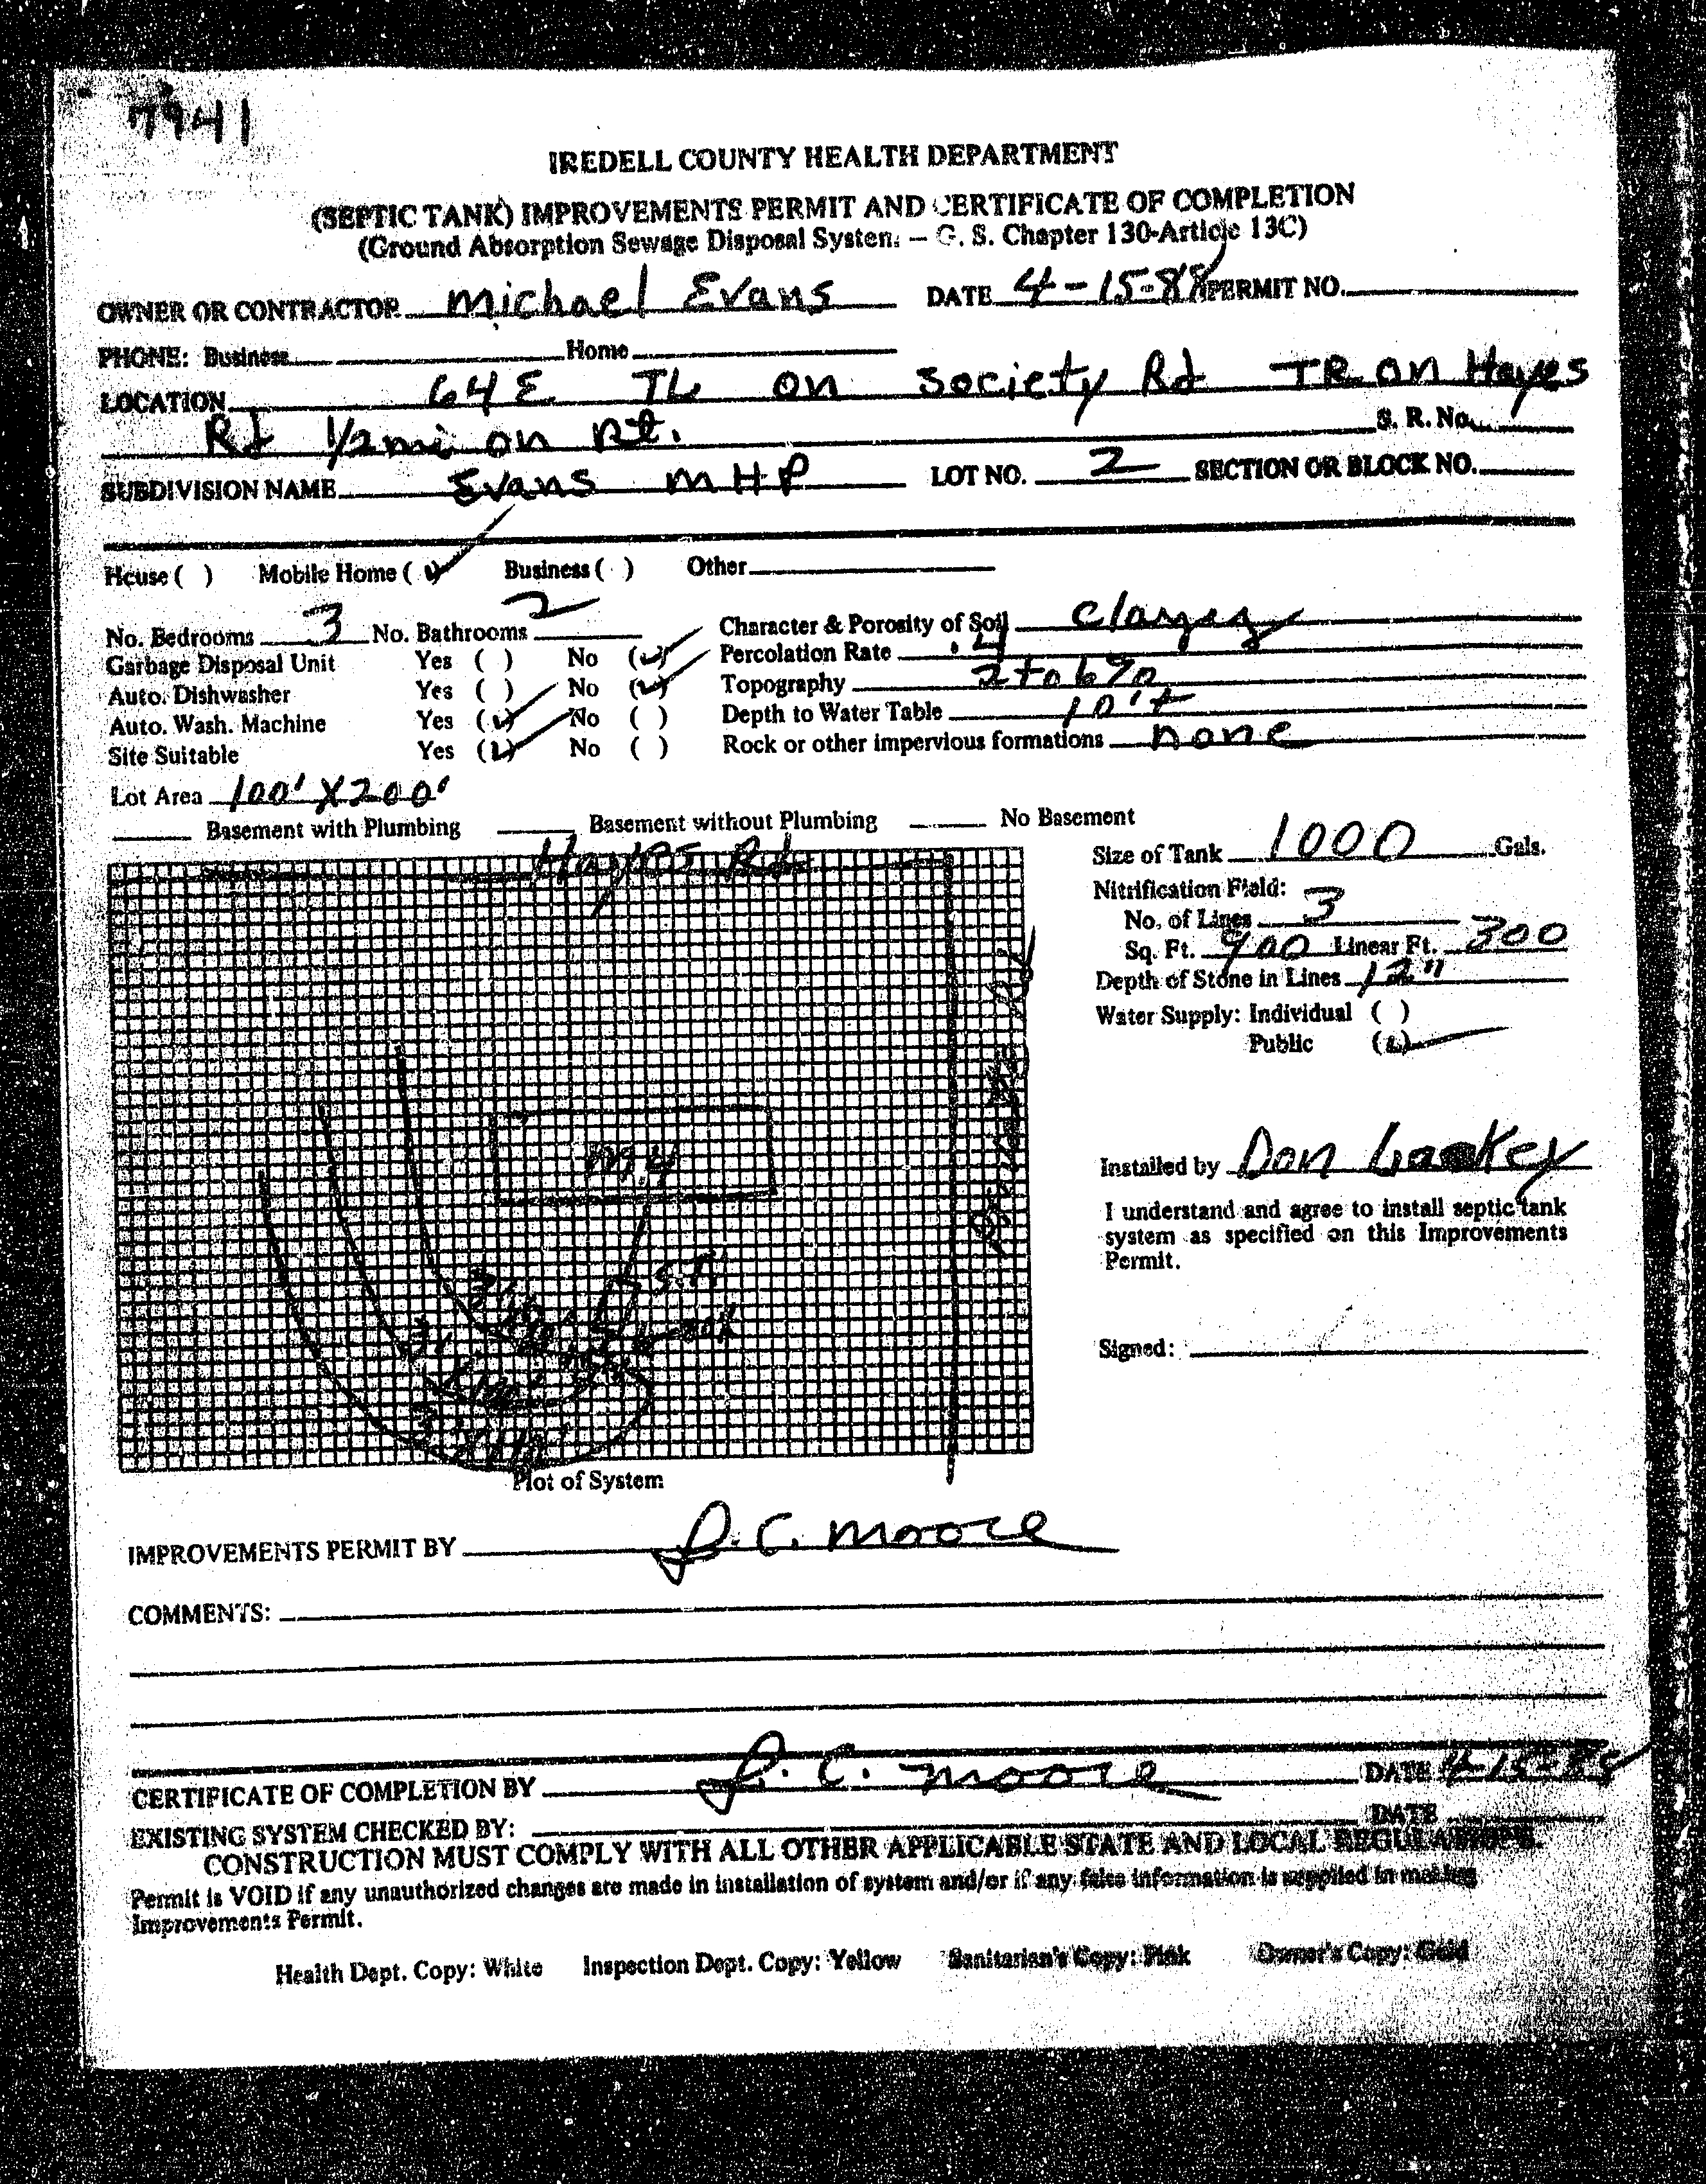 7941
IREDELL COUNTY HEALTH DEPARTMENT
(SEPTIC TANK) IMPROVEMENTS PERMIT AND CERTIFICATE OF COMPLETION
(Ground Absorption Sewage Disposal System – G. S. Chapter 130-Article 13C)
OWNER OR CONTRACTOR Michael Evans DATE 4-15-88 PERMIT NO.
PHONE: Business Home
LOCATION 64 E TL on Society Rd TR on Hayes
Rd 1/2 mi on Rt. S. R. No.
SUBDIVISION NAME Evans MHP LOT NO. 2 SECTION OR BLOCK NO.
House ( ) Mobile Home (✓) Business ( ) Other
No. Bedrooms 3 No. Bathrooms 2 Character & Porosity of Soil clayey
Garbage Disposal Unit Yes ( ) No (✓) Percolation Rate .4
Auto. Dishwasher Yes ( ) No (✓) Topography 2 to 6%
Auto. Wash. Machine Yes (✓) No ( ) Depth to Water Table 10'+
Site Suitable Yes (✓) No ( ) Rock or other impervious formations none
Lot Area 100' X 200'
Basement with Plumbing Basement without Plumbing No Basement
Hayes Rd
Size of Tank 1000 Gals.
Nitrification Field:
No. of Lines 3
Sq. Ft. 900 Linear Ft. 300
Depth of Stone in Lines 12"
Water Supply: Individual ( )
Public (✓)
M.H
S.T.
Installed by Don Lackey
I understand and agree to install septic tank
system as specified on this Improvements
Permit.
Signed:
Plot of System
IMPROVEMENTS PERMIT BY J. C. Moore
COMMENTS:
CERTIFICATE OF COMPLETION BY J. C. Moore DATE 4-15-88
EXISTING SYSTEM CHECKED BY: DATE
CONSTRUCTION MUST COMPLY WITH ALL OTHER APPLICABLE STATE AND LOCAL REGULATIONS.
Permit is VOID if any unauthorized changes are made in installation of system and/or if any false information is supplied in making
Improvements Permit.
Health Dept. Copy: White Inspection Dept. Copy: Yellow Sanitarian's Copy: Pink Owner's Copy: Gold